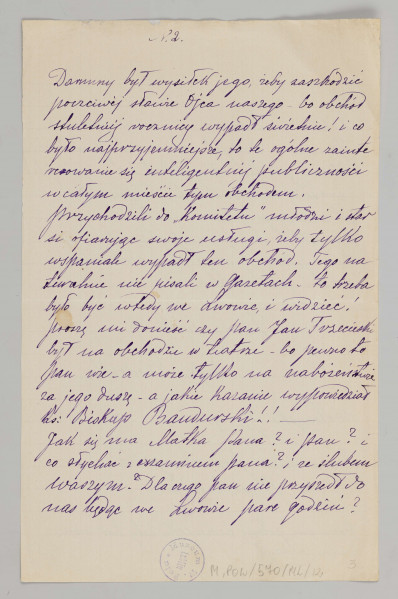 № 2.
Daremny był wysiłek jego, żeby zaszkodzić
poczciwej sławie Ojca naszego - bo obchód
stuletniej rocznicy wypadł świetnie! i co
było najprzyjemniejsze, to te ogólne zainte
resowanie się inteligentnej publiczności
w całym mieście tym obchodem.
Przychodzili do "Komitetu" młodzi i star
si ofiarując swoje usługi, żeby tylko
wspaniale wypadł ten obchód. Tego na
turalnie nie pisali w Gazetach - to trzeba
było być wtedy we Lwowie, i widzieć!
proszę mi donieść czy pan Jan Trzecieski
był na obchodzie w teatrze - bo pewno to
pan wie - a może tylko na nabożeństwie
za jego duszę - a jakie kazanie wypowiedział
ks: Biskup Bandurski!!
Jak się ma Matka pana? i pan? i
co słychać z examinem pana? i ze ślubem
waszym - Dlaczego pan nie przyszedł do
nas będąc we Lwowie parę godzin?
M. POW/570/ML/
3